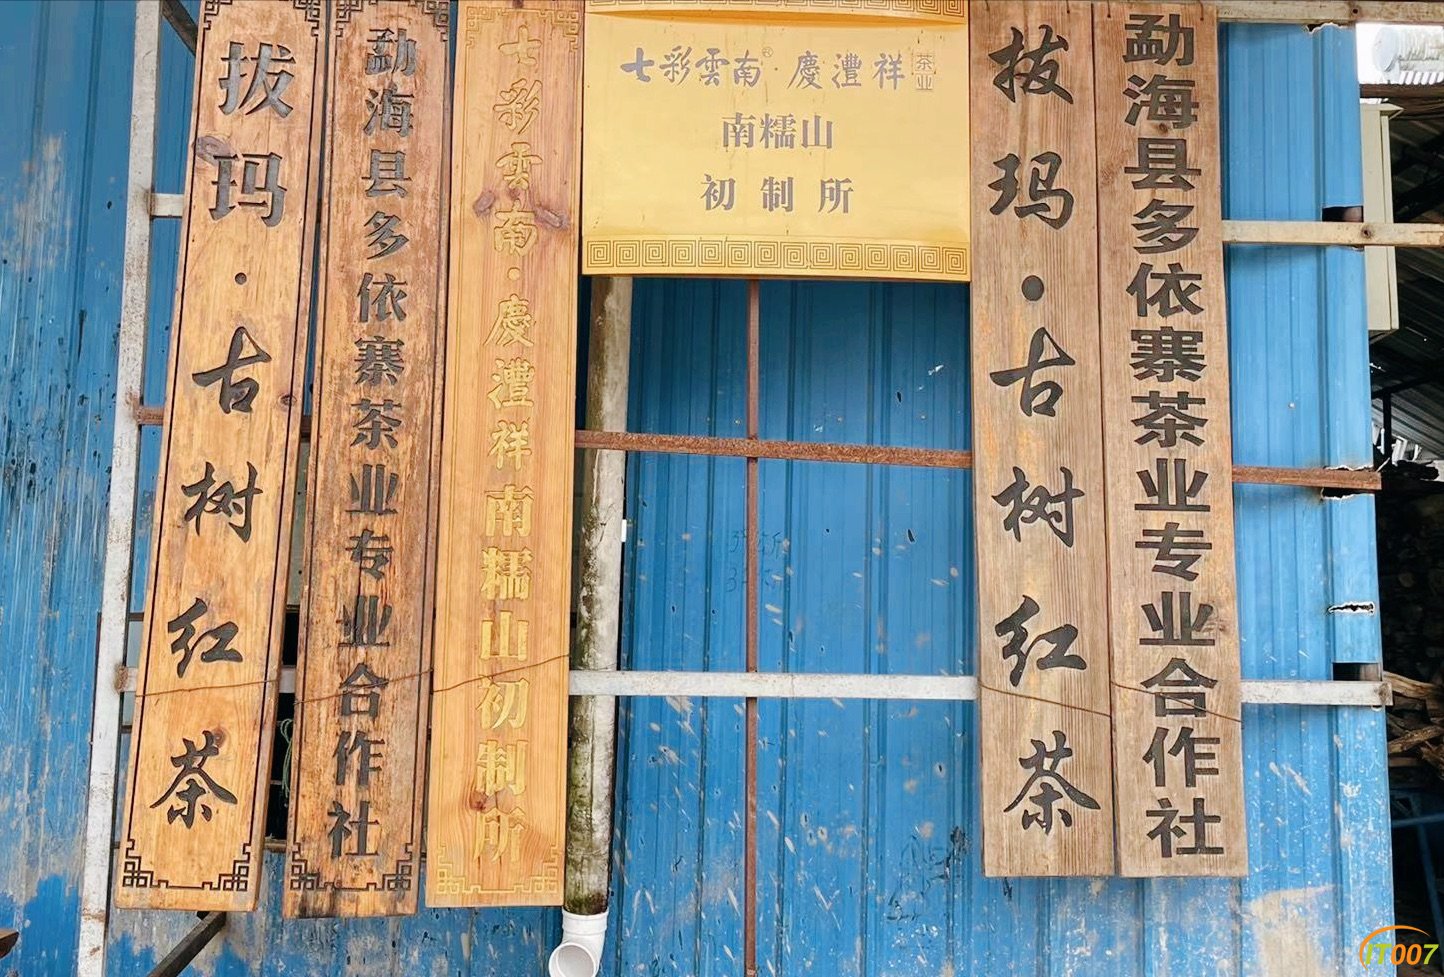 拔玛·古树红茶
勐海县多依寨茶业专业合作社
七彩雲南·慶灃祥南糯山初制所
七彩雲南®·慶灃祥茶业
南糯山
初制所
拔玛·古树红茶
勐海县多依寨茶业专业合作社
iT007